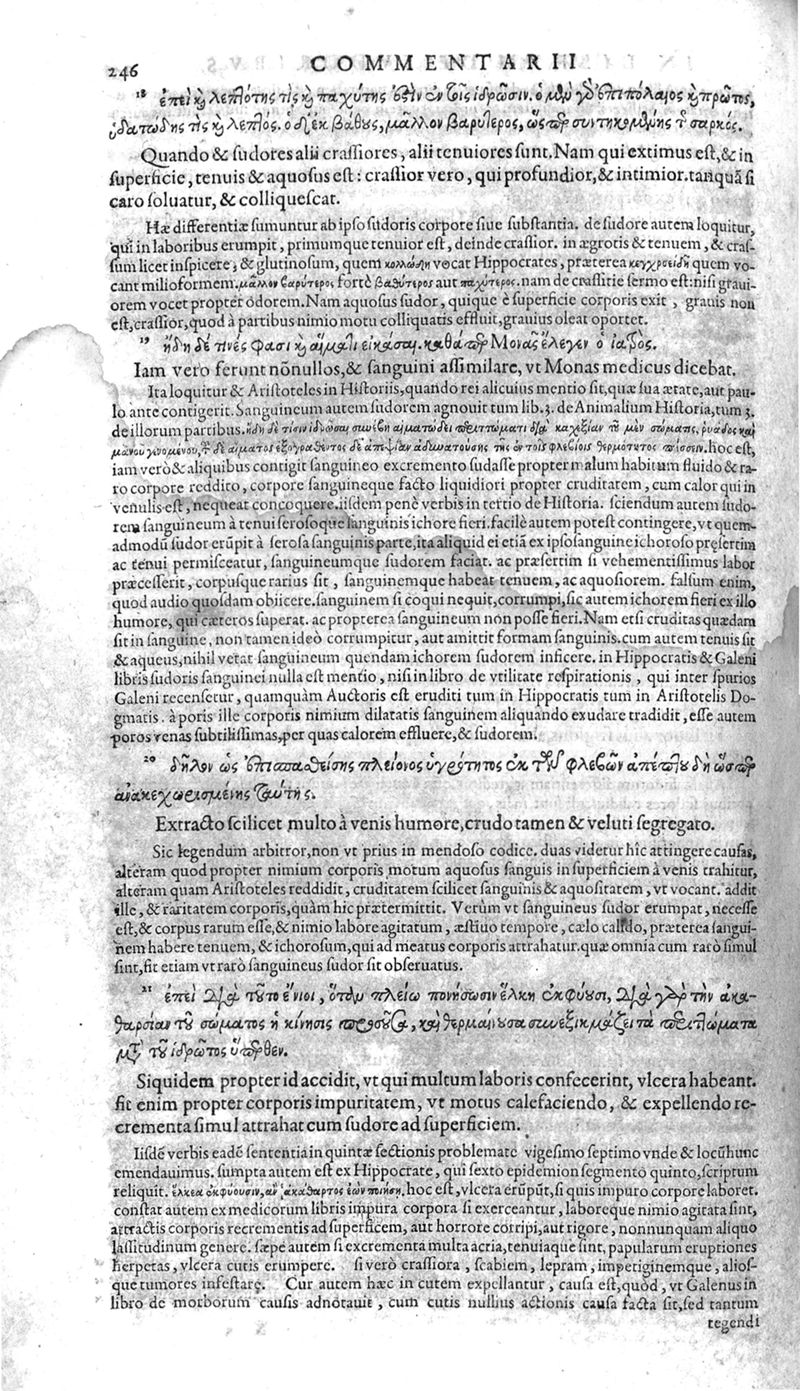 246 COMMENTARII
18 ἐπεὶ καὶ λεπτότης τὶς καὶ παχύτης ἐστὶν ἐν τοῖς ἱδρῶσιν. ὁ μὲν γὰρ ἐπιπόλαιος καὶ πρῶτος,
ὑδατώδης τὶς καὶ λεπτός. ὁ δ' ἐκ βάθους, μᾶλλον βαρύτερος, ὥσπερ συντηκομένης τ σαρκός.
Quando & sudores alii crassiores, alii tenuiores sunt. Nam qui extimus est, & in
superficie, tenuis & aquosus est: crassior vero, qui profundior, & intimior. tanquā si
caro soluatur, & colliquescat.
Hæ differentiæ sumuntur ab ipso sudoris corpore siue substantia. de sudore autem loquitur,
qui in laboribus erumpit, primumque tenuior est, deinde crassior. in ægrotis & tenuem, & cras-
sum licet inspicere, & glutinosum, quem κολλώδη vocat Hippocrates, præterea κεγχροειδῆ quem vo-
cant milioformem. μᾶλλον βαρύτερος fortè βαθύτερος aut παχύτερος. nam de crassitie sermo est: nisi graui-
orem vocet propter odorem. Nam aquosus sudor, quique è superficie corporis exit, grauis non
est, crassior, quod à partibus nimio motu colliquatis effluit, grauius oleat oportet.
19 ἤδη δέ τινές φασι καὶ αἵματι εἰκάσαι. καθάπερ Μονᾶς ἔλεγεν ὁ ἰατρός.
Iam vero ferunt nōnullos, & sanguini assimilare, vt Monas medicus dicebat.
Ita loquitur & Aristoteles in Historiis, quando rei alicuius mentio sit, quæ sua ætate, aut pau-
lo ante contigerit. Sanguineum autem sudorem agnouit tum lib. 3. de Animalium Historia, tum 3.
de illorum partibus. ἤδη δέ τισιν ἱδρῶσαι συνέβη αἱματώδει περιττώματι διὰ καχεξίαν τοῦ μὲν σώματος, ρυάδος καὶ
μανοῦ γενομένου, τοῦ δὲ αἵματος ἐξυγρανθέντος δὲ ἀπεψίαν ἀδυνατούσης τῆς ἐν τοῖς φλεβίοις θερμότητος πέσσειν. hoc est,
iam verò & aliquibus contigit sanguineo excremento sudasse propter malum habitum fluido & ra-
ro corpore reddito, corpore sanguineque facto liquidiori propter cruditatem, cum calor qui in
venulis est, nequeat concoquere. iisdem penè verbis in tertio de Historia. sciendum autem sudo-
rem sanguineum à tenui serosoque sanguinis ichore fieri. facilè autem potest contingere, vt quem-
admodū sudor erūpit à serosa sanguinis parte, ita aliquid ei etiā ex ipso sanguine ichoroso pręsertim
ac tenui permisceatur, sanguineumque sudorem faciat. ac præsertim si vehementissimus labor
præcesserit, corpusque rarius sit, sanguinemque habeat tenuem, ac aquosiorem. falsum enim,
quod audio quosdam obiicere. sanguinem si coqui nequit, corrumpi, sic autem ichorem fieri ex illo
humore, qui cæteros superat. ac propterea sanguineum non posse fieri. Nam etsi cruditas quædam
sit in sanguine, non tamen ideò corrumpitur, aut amittit formam sanguinis. cum autem tenuis sit
& aqueus, nihil vetat sanguineum quendam ichorem sudorem inficere. in Hippocratis & Galeni
libris sudoris sanguinei nulla est mentio, nisi in libro de vtilitate respirationis, qui inter spurios
Galeni recensetur, quamquàm Auctoris est eruditi tum in Hippocratis tum in Aristotelis Do-
gmatis. à poris ille corporis nimium dilatatis sanguinem aliquando exudare tradidit, esse autem
poros venas subtilissimas, per quas calorem effluere, & sudorem.
20 δῆλον ὡς ἐπισπασθείσης πλείονος ὑγρότητος ἐκ τῶν φλεβῶν ἀπέπτου δὴ ὥσπερ
ἀνακεχωρισμένης ταύτης.
Extracto scilicet multo à venis humore, crudo tamen & veluti segregato.
Sic legendum arbitror, non vt prius in mendoso codice. duas videtur hîc attingere causas,
alteram quod propter nimium corporis motum aquosus sanguis in superficiem à venis trahitur,
alteram quam Aristoteles reddidit, cruditatem scilicet sanguinis & aquositatem, vt vocant. addit
ille, & raritatem corporis, quàm hic prætermittit. Verùm vt sanguineus sudor erumpat, necesse
est, & corpus rarum esse, & nimio labore agitatum, æstiuo tempore, cælo calido, præterea sangui-
nem habere tenuem, & ichorosum, qui ad meatus corporis attrahatur. quæ omnia cum rarò simul
sint, fit etiam vt rarò sanguineus sudor sit obseruatus.
21 ἐπεὶ διὰ τοῦτο ἔνιοι, ὅταν πλείω πονήσωσιν ἕλκη ἐκφύουσι, διὰ γὰρ τὴν ἀκα-
θαρσίαν τοῦ σώματος ἡ κίνησις προσοῦσα, καὶ θερμαίνουσα συνεξικμάζει τὰ περιττώματα
μετὰ τοῦ ἱδρῶτος ὕπερθεν.
Siquidem propter id accidit, vt qui multum laboris confecerint, vlcera habeant.
fit enim propter corporis impuritatem, vt motus calefaciendo, & expellendo re-
crementa simul attrahat cum sudore ad superficiem.
Iisdē verbis eadē sententia in quintæ sectionis problemate vigesimo septimo vnde & locū hunc
emendauimus. sumpta autem est ex Hippocrate, qui sexto epidemion segmento quinto, scriptum
reliquit. ἕλκεα ἐκφύουσιν, ἂν ἀκάθαρτος ἐὼν πονήσῃ. hoc est, vlcera erūpūt, si quis impuro corpore laboret.
constat autem ex medicorum libris impura corpora si exerceantur, laboreque nimio agitata sint,
attractis corporis recrementis ad superficem, aut horrore corripi, aut rigore, nonnunquam aliquo
lassitudinum genere. sæpe autem si excrementa multa acria, tenuiaque sint, papularum eruptiones
herpetas, vlcera cutis erumpere. si verò crassiora, scabiem, lepram, impetiginemque, alios-
que tumores infestare. Cur autem hæc in cutem expellantur, causa est, quod, vt Galenus in
libro de morborum causis adnotauit, cum cutis nullius actionis causa facta sit, sed tantum
tegendi